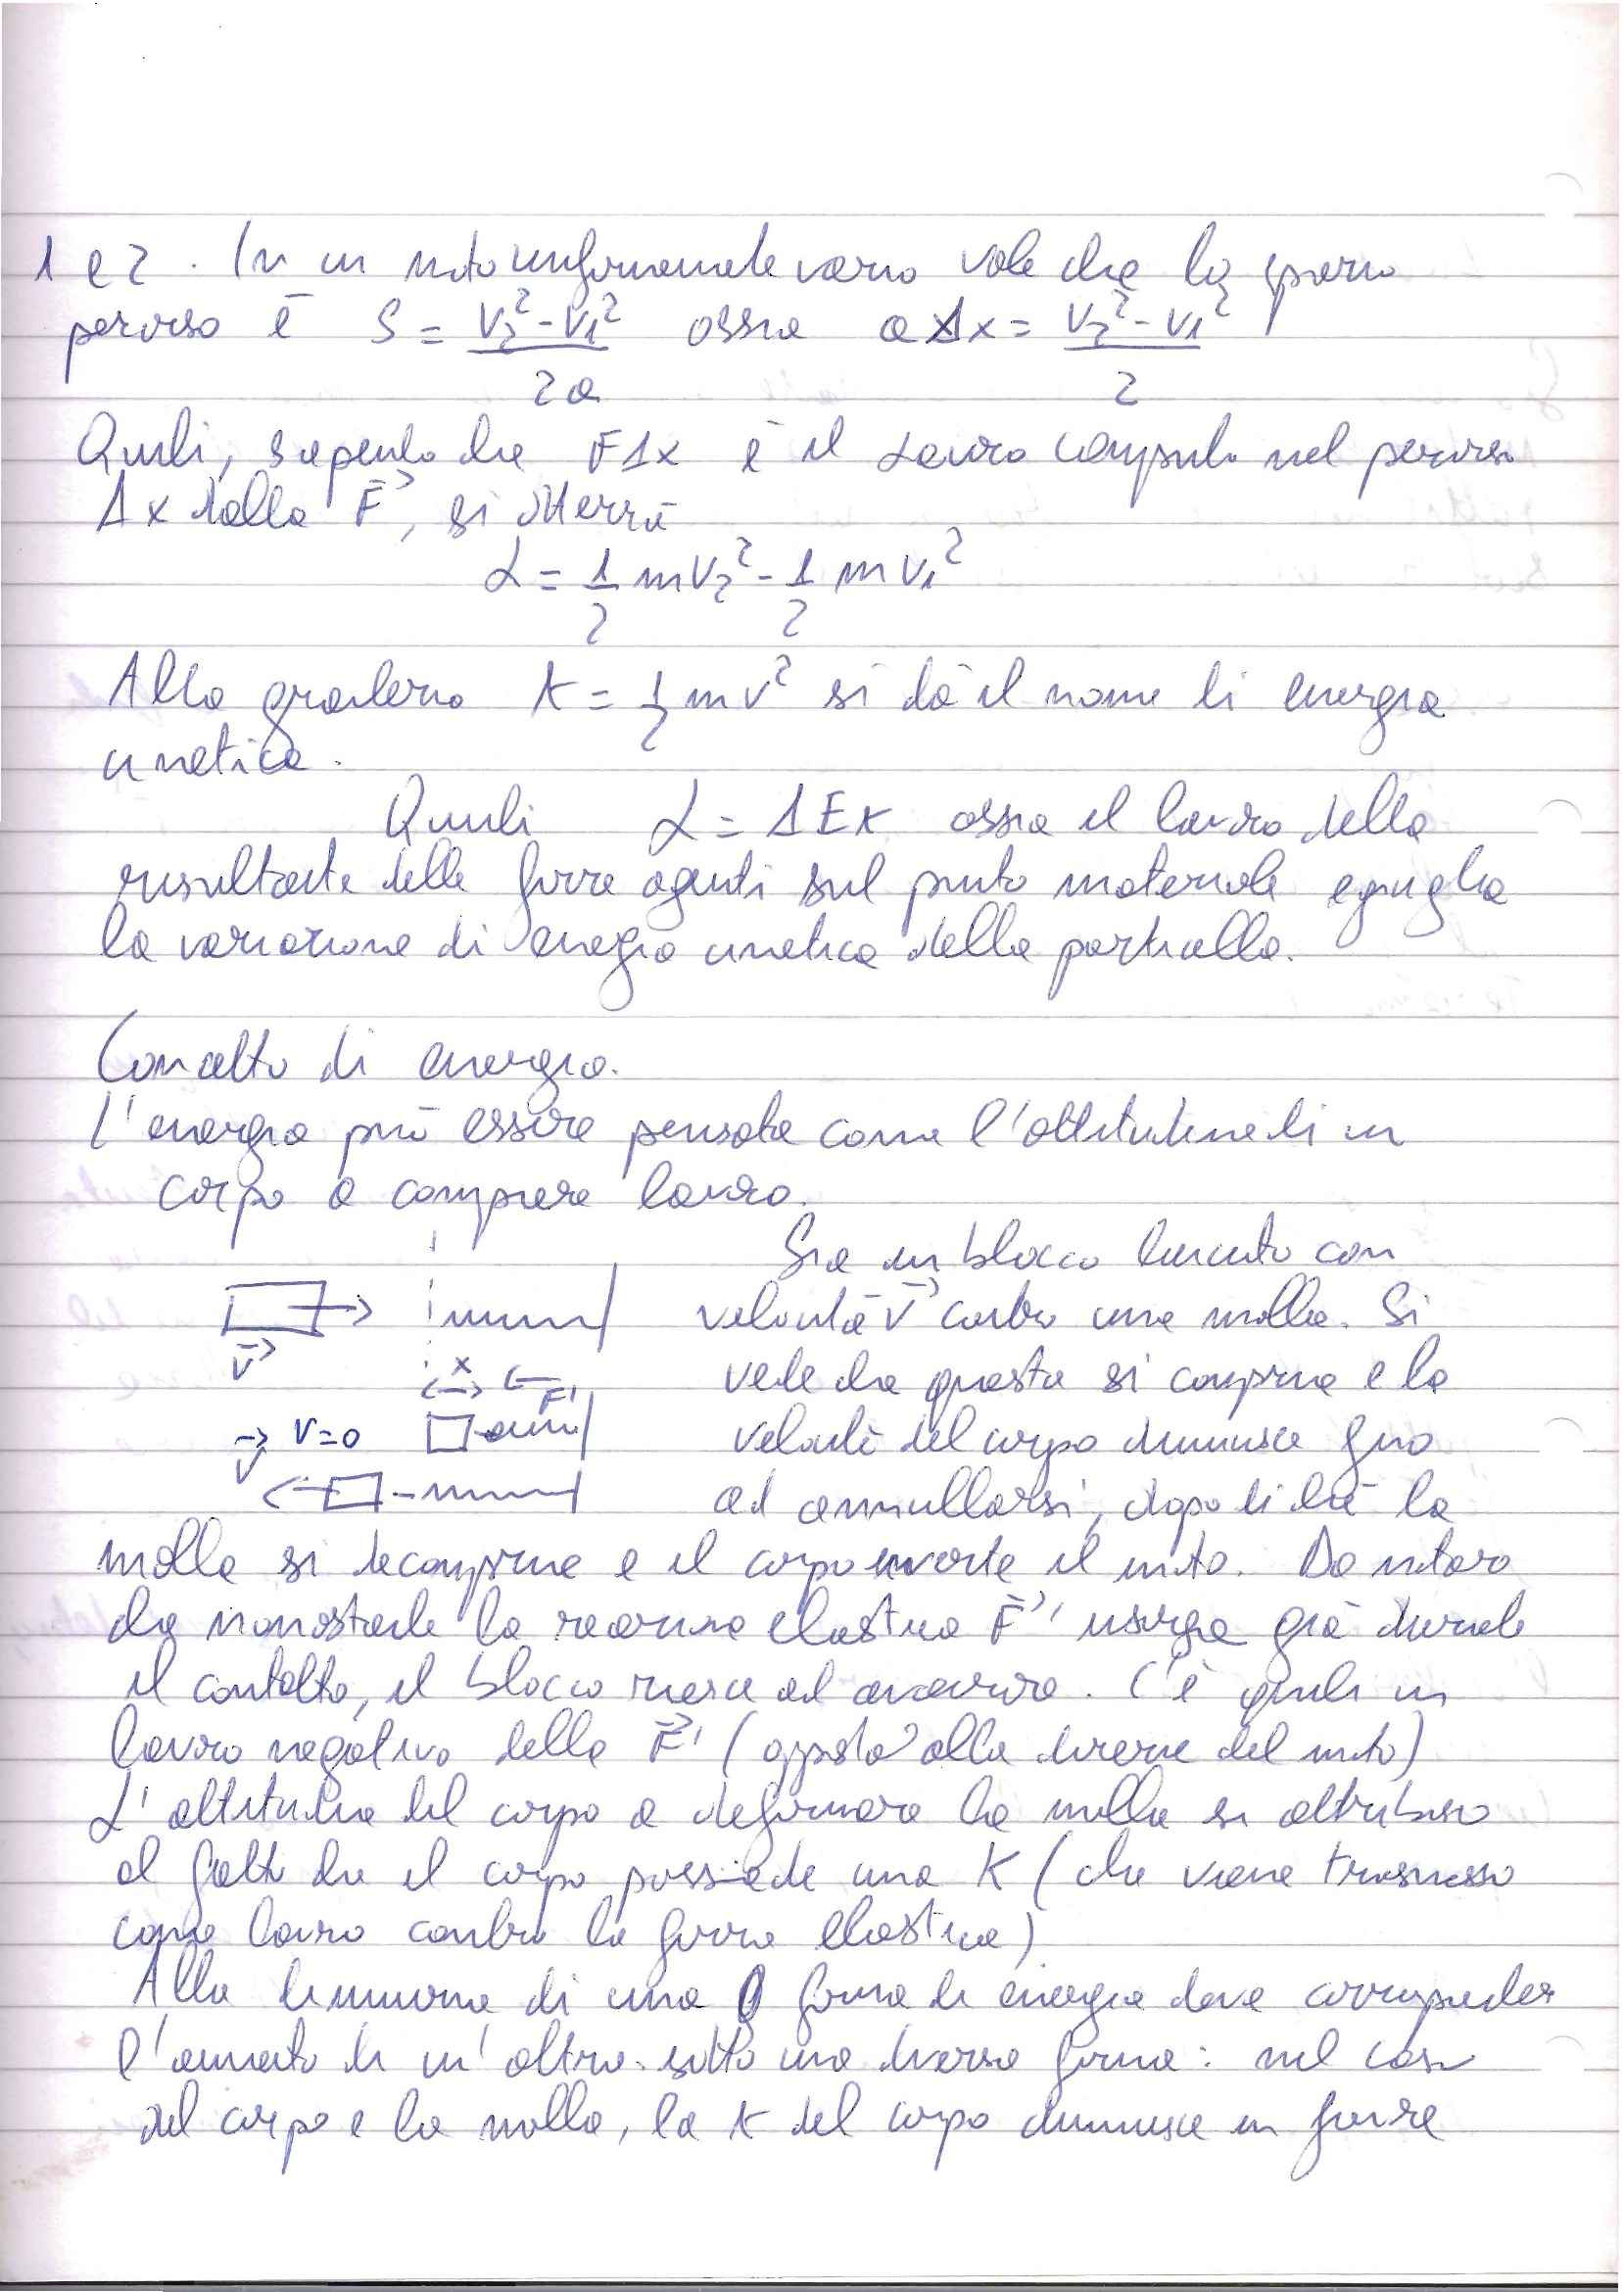 1 e 2. In un moto uniformemente vario vale che lo spazio
percorso è S = (v₂² - v₁²) / 2a ossia a Δx = (v₂² - v₁²) / 2
Quindi, sapendo che FΔx è il Lavoro compiuto nel percorso
Δx dalla F⃗, si otterrà
L = 1/2 mv₂² - 1/2 mv₁²
Alla grandezza K = 1/2 mv² si dà il nome di energia
cinetica.
Quindi L = ΔEk ossia il lavoro della
risultante delle forze agenti sul punto materiale eguaglia
la variazione di energia cinetica della particella.
Concetto di energia.
L'energia può essere pensata come l'attitudine di un
corpo a compiere lavoro.
Sia un blocco lanciato con
velocità v⃗ contro una molla. Si
v⃗
vede che questa si comprime e la
x F'
velocità del corpo diminuisce fino
v⃗ v=0
ad annullarsi, dopo di che la
molla si decomprime e il corpo inverte il moto. Da notare
che nonostante la reazione elastica F⃗' insorga già durante
il contatto, il blocco riesce ad avanzare. C'è quindi un
lavoro negativo della F⃗' (opposta alla direzione del moto)
L'attitudine del corpo a deformare la molla si attribuisce
al fatto che il corpo possiede una K (che viene trasmesso
come lavoro contro la forza elastica)
Alla diminuzione di una forma di energia deve corrispondere
l'aumento di un'altra sotto una diversa forma: nel caso
del corpo e la molla, la K del corpo diminuisce in favore